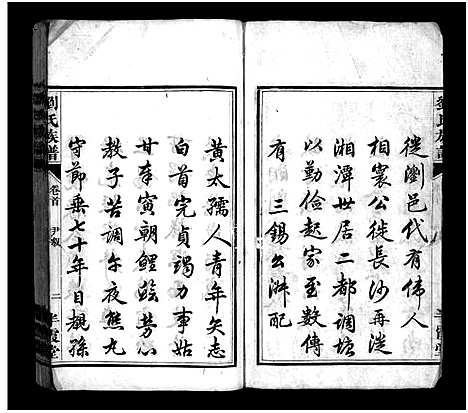 徙瀏邑代有偉人
相襄公徙長沙再徙
湘潭世居二都調塘
以勤儉起家至數傳
有三錫公淋配
黃太孺人青年矢志
白首完貞竭力事姑
甘奉寅朝鯉鱠勞心
教子苦調午夜熊丸
守節垂七十年目覩孫
劉氏族譜
卷首
尹叙
二
半霞堂